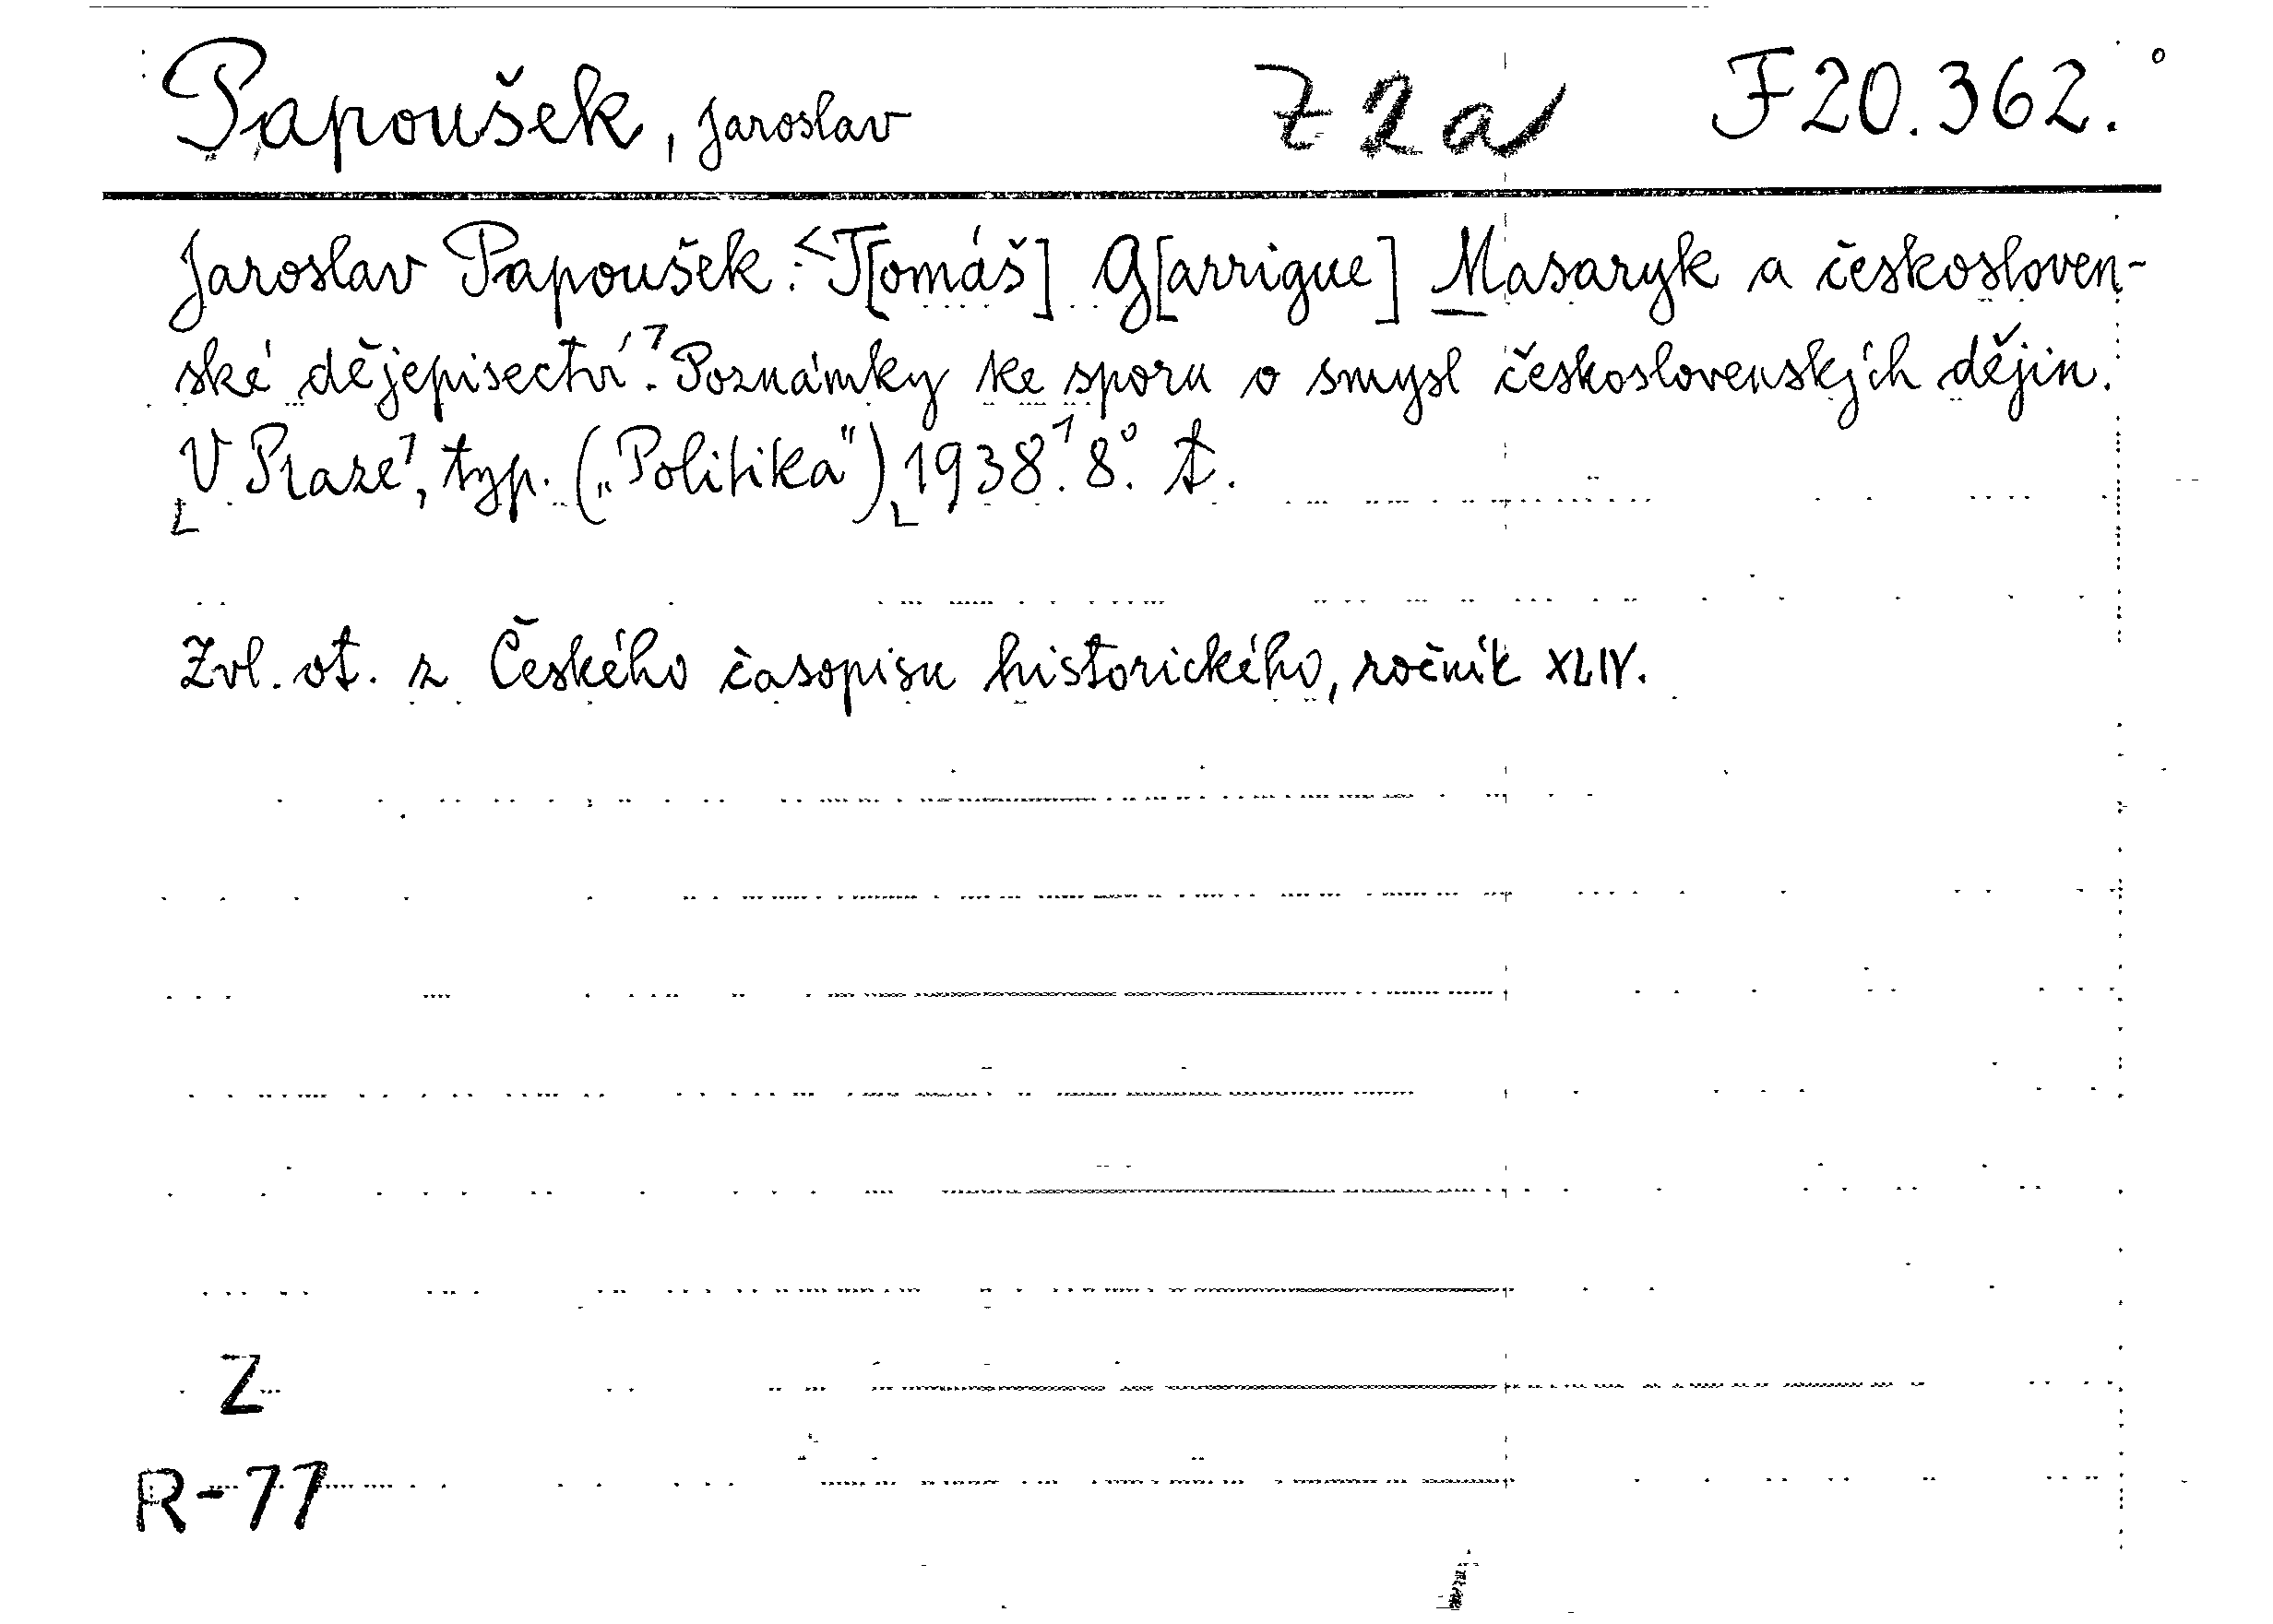 Papoušek, Jaroslav Z 2a F 20.362.
Jaroslav Papoušek: T[omáš] G[arrigue] Masaryk a českosloven-
ské dějepisectví. Poznámky ke sporu o smysl československých dějin.
V Praze, typ. („Politika") 1938. 8°.
Zvl. ot. z Českého časopisu historického, ročník XLIV.
Z
R-77